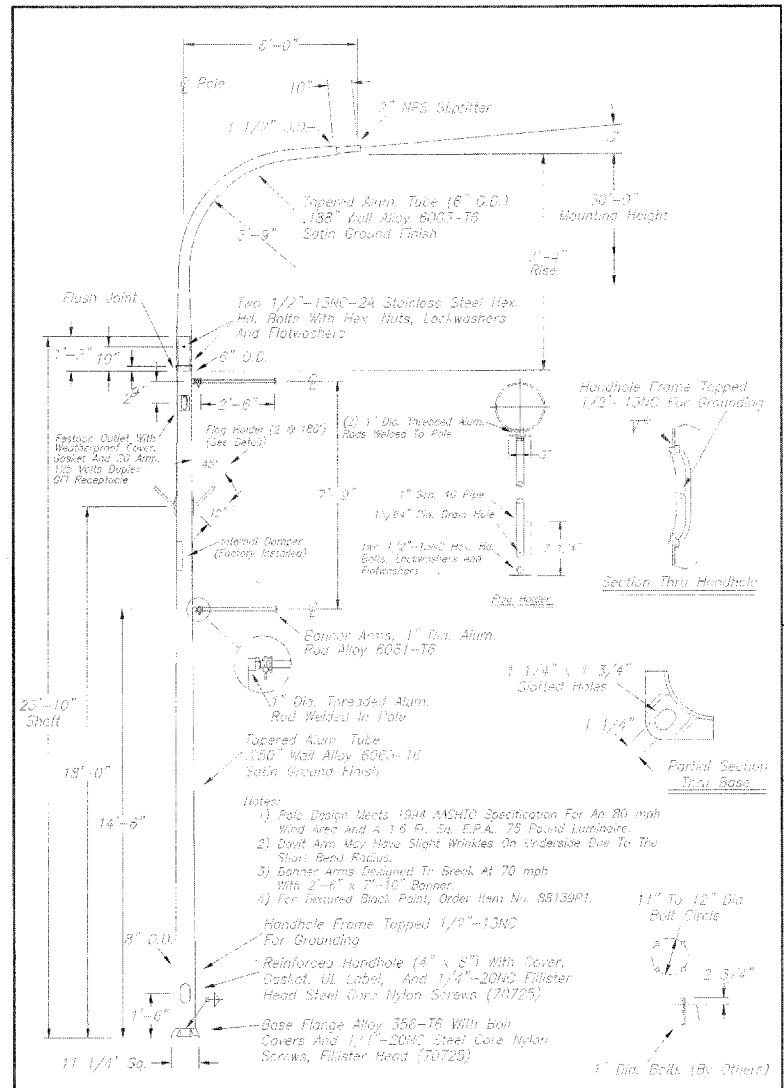 6'-0"
Pole
10"
2" NPS Slipfitter
3 1/2" O.D.
Tapered Alum. Tube (6" O.D.)
.188" Wall Alloy 6063-T6
Satin Ground Finish
30'-0"
Mounting Height
3'-9"
Rise
Flush Joint
Two 1/2"-13NC-2A Stainless Steel Hex.
Hd. Bolts With Hex Nuts, Lockwashers
And Flatwashers
6" O.D.
10"
2'-6"
Handhole Frame Tapped
1/2"-13NC For Grounding
Festoon Outlet With
Weatherproof Cover,
Gasket And 20 Amp,
125 Volts Duplex
GFI Receptacle
Flag Holder (2 @ 180°)
(See Detail)
45°
12"
(2) 1" Dia. Threaded Alum.
Rods Welded To Pole
3"
1" Sch. 40 Pipe
Dia. Drain Hole
Two 1/2"-13NC Hex. Hd.
Bolts, Lockwashers And
Flatwashers
1/4"
Flag Holder
Section Thru Handhole
Internal Damper
(Factory Installed)
Banner Arms, 1" Dia. Alum.
Rod Alloy 6061-T6
1" Dia. Threaded Alum.
Rod Welded In Pole
1 1/4" x 1 3/4"
Slotted Holes
1 1/4"
Partial Section
Thru Base
Shaft
18'-0"
14'-6"
Tapered Alum. Tube
.250" Wall Alloy 6063-T6
Satin Ground Finish
Notes:
1) Pole Design Meets 1994 AASHTO Specification For An 80 mph
Wind Area And A 1.6 Ft. Sq. E.P.A., 75 Pound Luminaire.
2) Davit Arm May Have Slight Wrinkles On Underside Due To The
Short Bend Radius.
3) Banner Arms Designed To Break At 70 mph
With 2'-6" x 7'-10" Banner.
4) For Textured Black Paint, Order Item No. 88139P1.
Handhole Frame Tapped 1/2"-13NC
For Grounding
11" To 12" Dia.
Bolt Circle
8" O.D.
Reinforced Handhole (4" x 6") With Cover,
Gasket, UL Label, And 1/4"-20NC Fillister
Head Steel Core Nylon Screws (70725)
2 3/4"
1'-6"
Base Flange Alloy 356-T6 With Bolt
Covers And 1/4"-20NC Steel Core Nylon
Screws, Fillister Head (70725)
11 1/4" Sq.
1" Dia. Bolts (By Others)